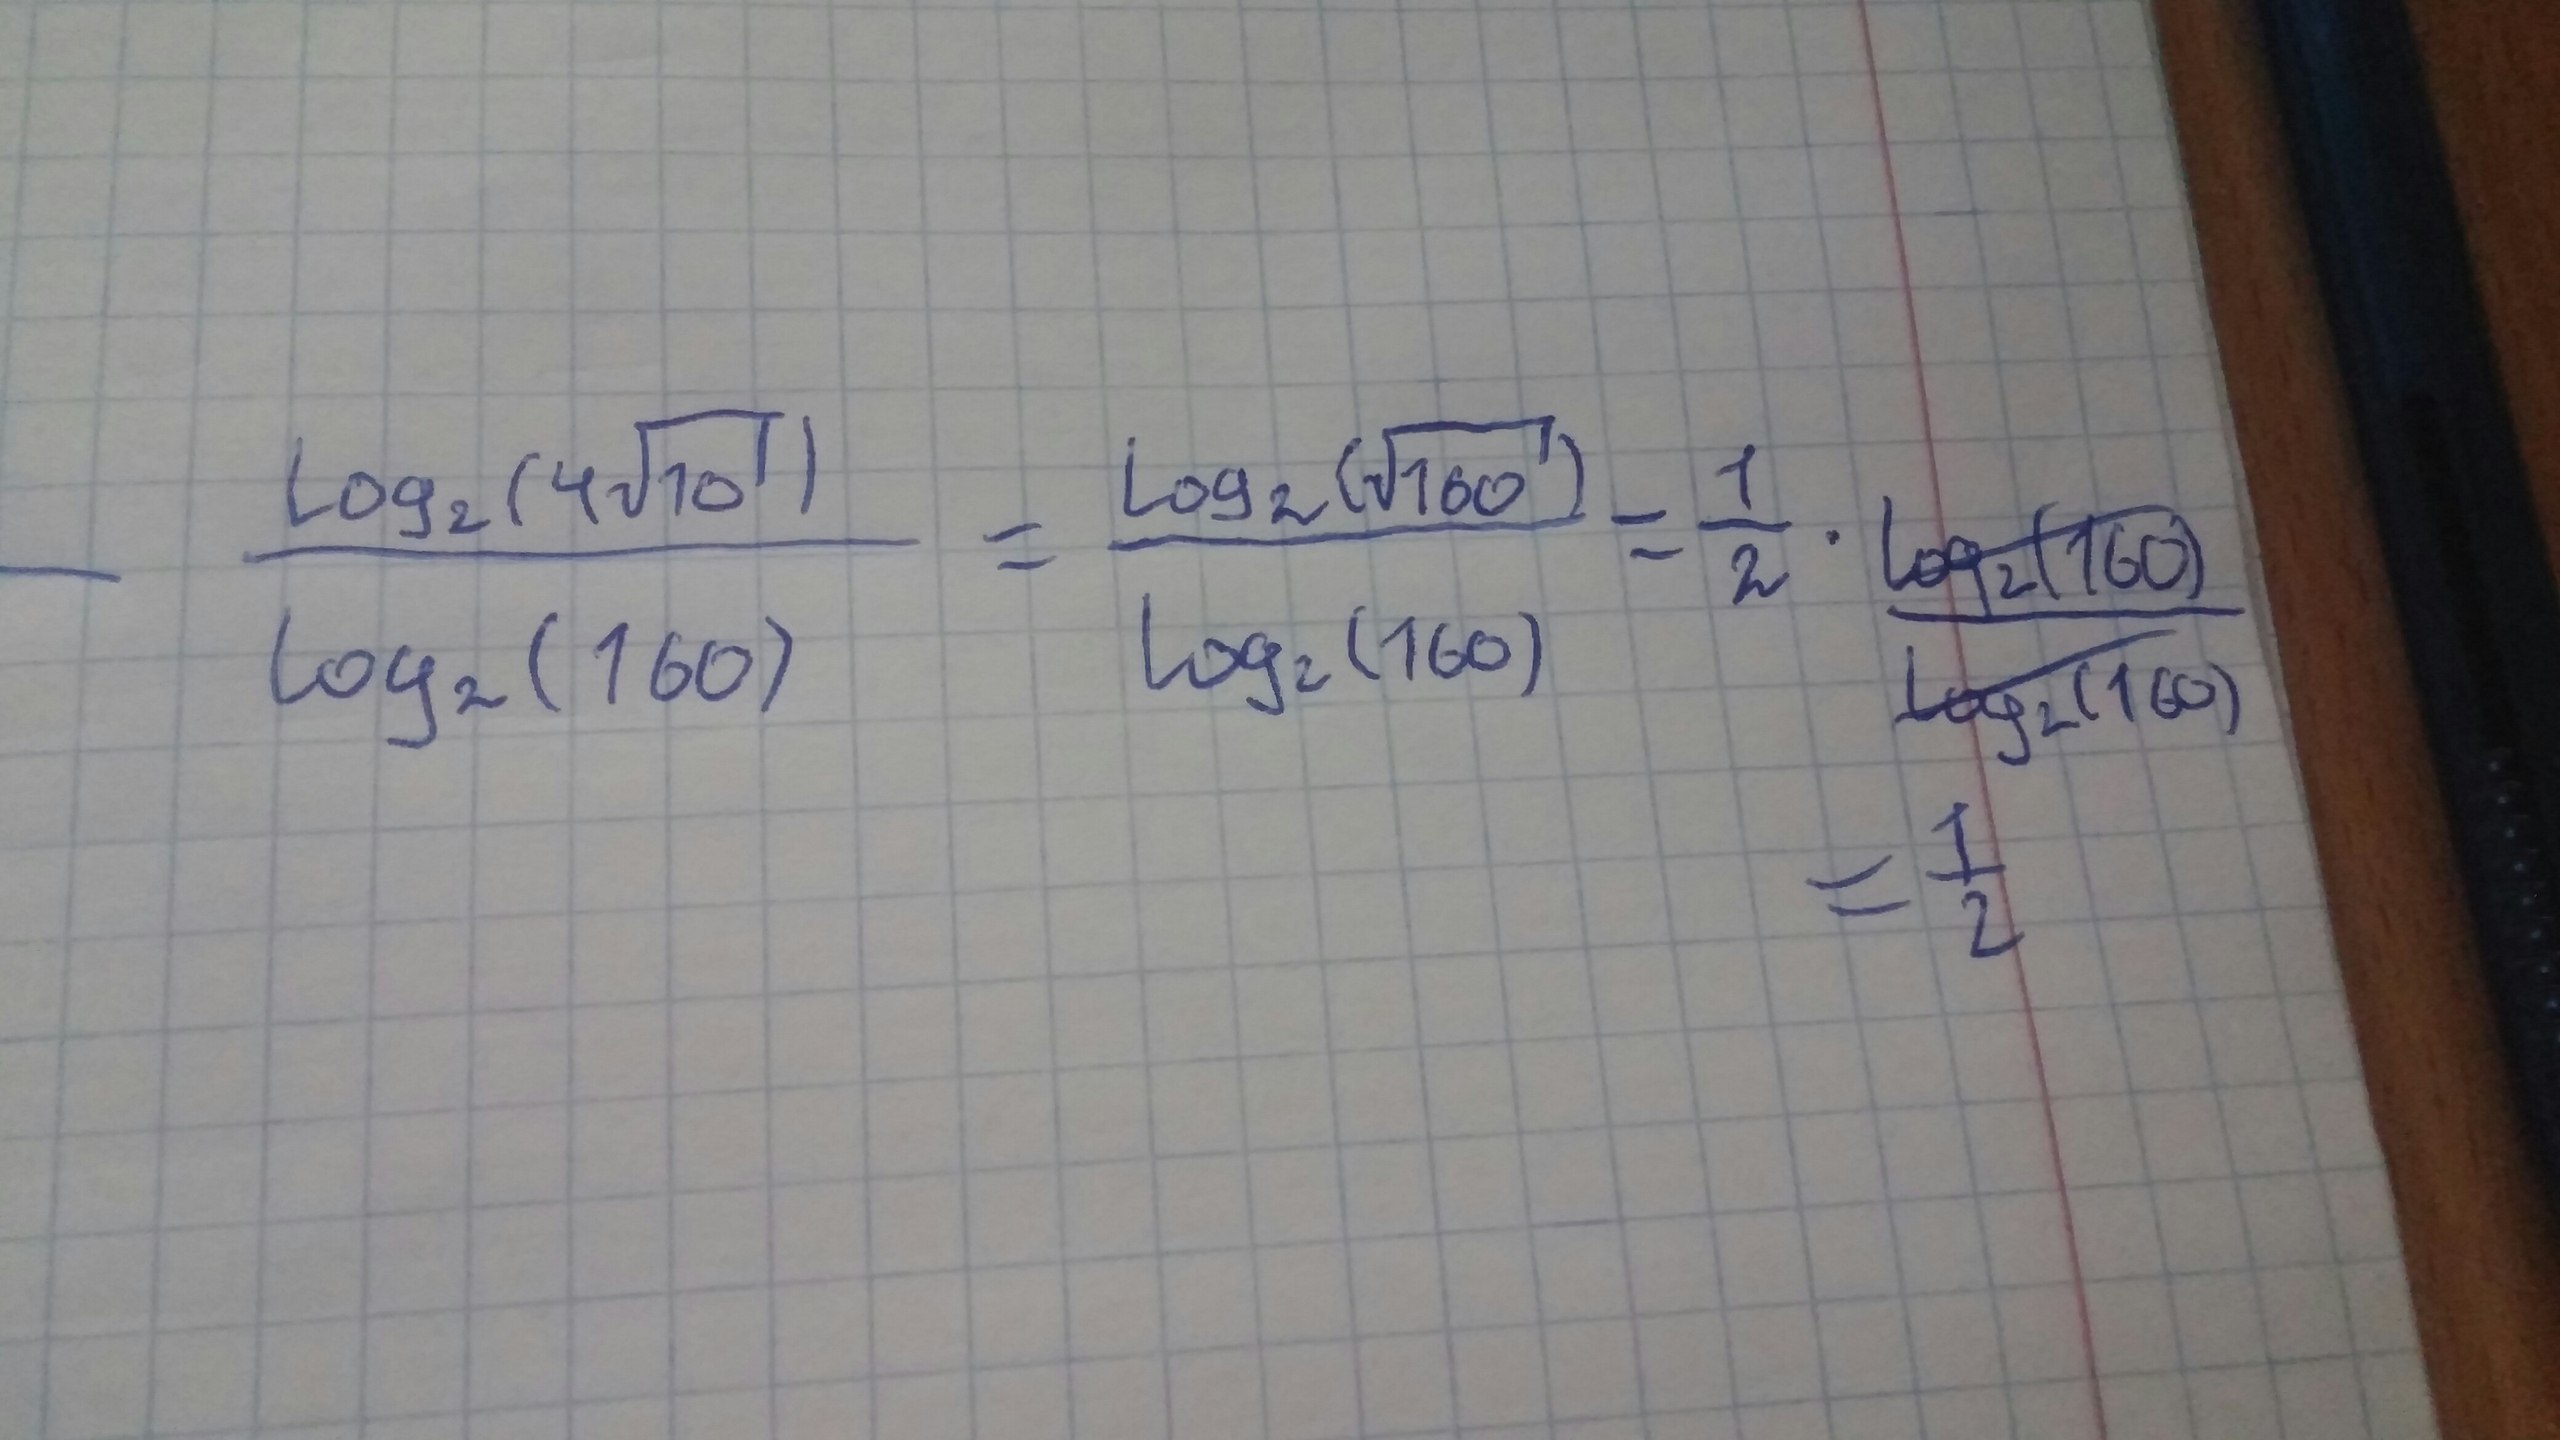 log₂(4√10) / log₂(160) = log₂(√160) / log₂(160) = 1/2 · log₂(160) / log₂(160)
= 1/2